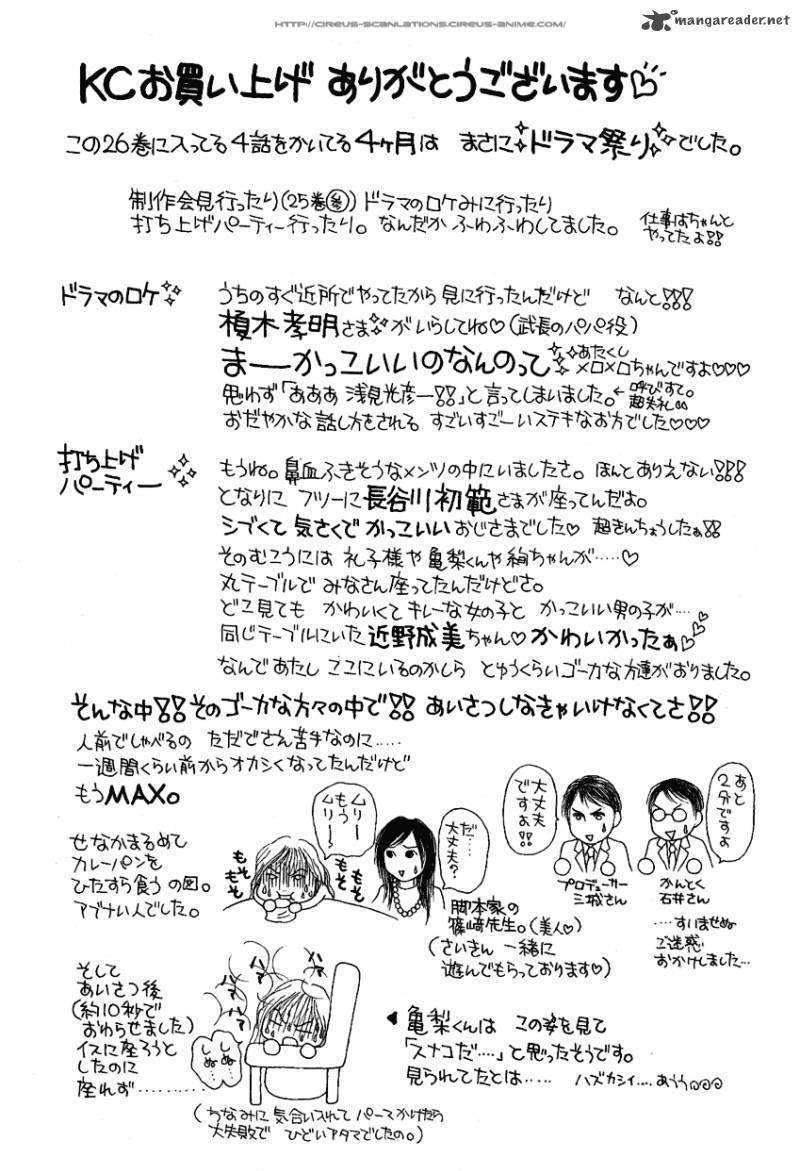 HTTP://CIREUS-SCANLATIONS.CIREUS-ANIME.COM/
mangareader.net
KCお買い上げ ありがとうございます♡
この26巻に入ってる4話をかいてる4ヶ月は まさにドラマ祭りでした。
制作会見行ったり(25巻参)ドラマのロケみに行ったり
打ち上げパーティー行ったり。なんだか ふわふわしてました。
仕事はちゃんと
やってたよ!!
ドラマのロケ
うちのすぐ近所でやってたから 見に行ったんだけど なんと!!!
榎木孝明さまがいらしてね♡(武長のパパ役)
まーーかっこいいのなんのって
あたくし
メロメロちゃんですよ♡♡♡
思わず「あああ 浅見光彦ー!!」と言ってしまいました。
←呼びすて。
超失礼
おだやかな話し方をされる すごいすごーいステキなお方でした♡♡♡
打ち上げ
パーティー
もうね。鼻血ふきそうなメンツの中にいましたさ。ほんとありえない!!!
となりに フツーに長谷川初範さまが座ってんだよ。
シブくて 気さくで かっこいいおじさまでした♡ 超きんちょうしたぁ!!
そのむこうには 礼子様や亀梨くんや絢ちゃんが……♡
丸テーブルで みなさん座ってたんだけどさ。
どこ見ても かわいくて キレーな女の子と かっこいい男の子が…
同じテーブルにいた 近野成美ちゃん♡かわいかったぁ♡
なんであたし ここにいるのかしら とゆうくらいゴーカな方達がおりました。
そんな中!!そのゴーカな方々の中で!! あいさつしなきゃいけなくてさ!!
人前でしゃべるの ただでさえ苦手なのに……
一週間くらい前からオカシくなってたんだけど
もうMAX。
せなかまるめて
カレーパンを
ひたすら食う の図。
アブナい人でした。
もそ
もそ
ムリー
もう
ムリー
もそ
もそ
だ…
大丈夫?
脚本家の
篠﨑先生。(美人♡)
(さいきん 一緒に
遊んでもらっております♡)
大丈夫
ですよ!!
プロデューサー
三城さん
あと
2分ですよ
かんとく
石井さん
……すいませぬ
ご迷惑
おかけしました…
そして
あいさつ後
(約10秒で
おわらせました)
イスに座ろうと
したのに
座れず…………
ハァ
ハァ
ハァ
しぬ…
しぬ…
(ちなみに 気合い入れて パーマかけたら
大失敗で ひどいアタマでしたの。)
◀亀梨くんは この姿を見て
「スナコだ…」と思ったそうです。
見られてたとは…… ハズカシイ…… あうう